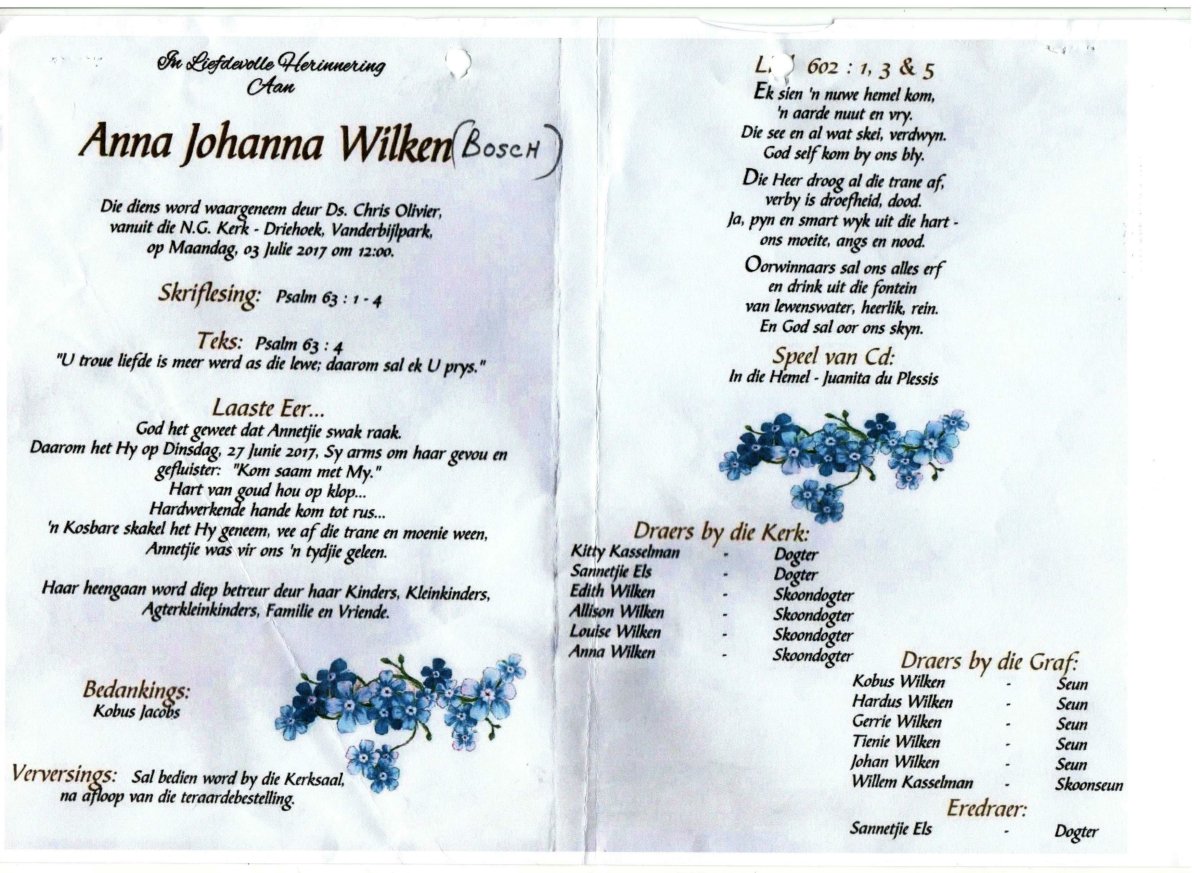 In Liefdevolle Herinnering
Aan
Anna Johanna Wilken (BOSCH)
Die diens word waargeneem deur Ds. Chris Olivier,
vanuit die N.G. Kerk - Driehoek, Vanderbijlpark,
op Maandag, 03 Julie 2017 om 12:00.
Skriflesing: Psalm 63 : 1 - 4
Teks: Psalm 63 : 4
"U troue liefde is meer werd as die lewe; daarom sal ek U prys."
Laaste Eer...
God het geweet dat Annetjie swak raak.
Daarom het Hy op Dinsdag, 27 Junie 2017, Sy arms om haar gevou en
gefluister: "Kom saam met My."
Hart van goud hou op klop...
Hardwerkende hande kom tot rus...
'n Kosbare skakel het Hy geneem, vee af die trane en moenie ween,
Annetjie was vir ons 'n tydjie geleen.
Haar heengaan word diep betreur deur haar Kinders, Kleinkinders,
Agterkleinkinders, Familie en Vriende.
Bedankings:
Kobus Jacobs
Verversings: Sal bedien word by die Kerksaal,
na afloop van die teraardebestelling.
602 : 1, 3 & 5
Ek sien 'n nuwe hemel kom,
'n aarde nuut en vry.
Die see en al wat skei, verdwyn.
God self kom by ons bly.
Die Heer droog al die trane af,
verby is droefheid, dood.
Ja, pyn en smart wyk uit die hart -
ons moeite, angs en nood.
Oorwinnaars sal ons alles erf
en drink uit die fontein
van lewenswater, heerlik, rein.
En God sal oor ons skyn.
Speel van Cd:
In die Hemel - Juanita du Plessis
Draers by die Kerk:
Kitty Kasselman - Dogter
Sannetjie Els - Dogter
Edith Wilken - Skoondogter
Allison Wilken - Skoondogter
Louise Wilken - Skoondogter
Anna Wilken - Skoondogter
Draers by die Graf:
Kobus Wilken - Seun
Hardus Wilken - Seun
Gerrie Wilken - Seun
Tienie Wilken - Seun
Johan Wilken - Seun
Willem Kasselman - Skoonseun
Eredraer:
Sannetjie Els - Dogter